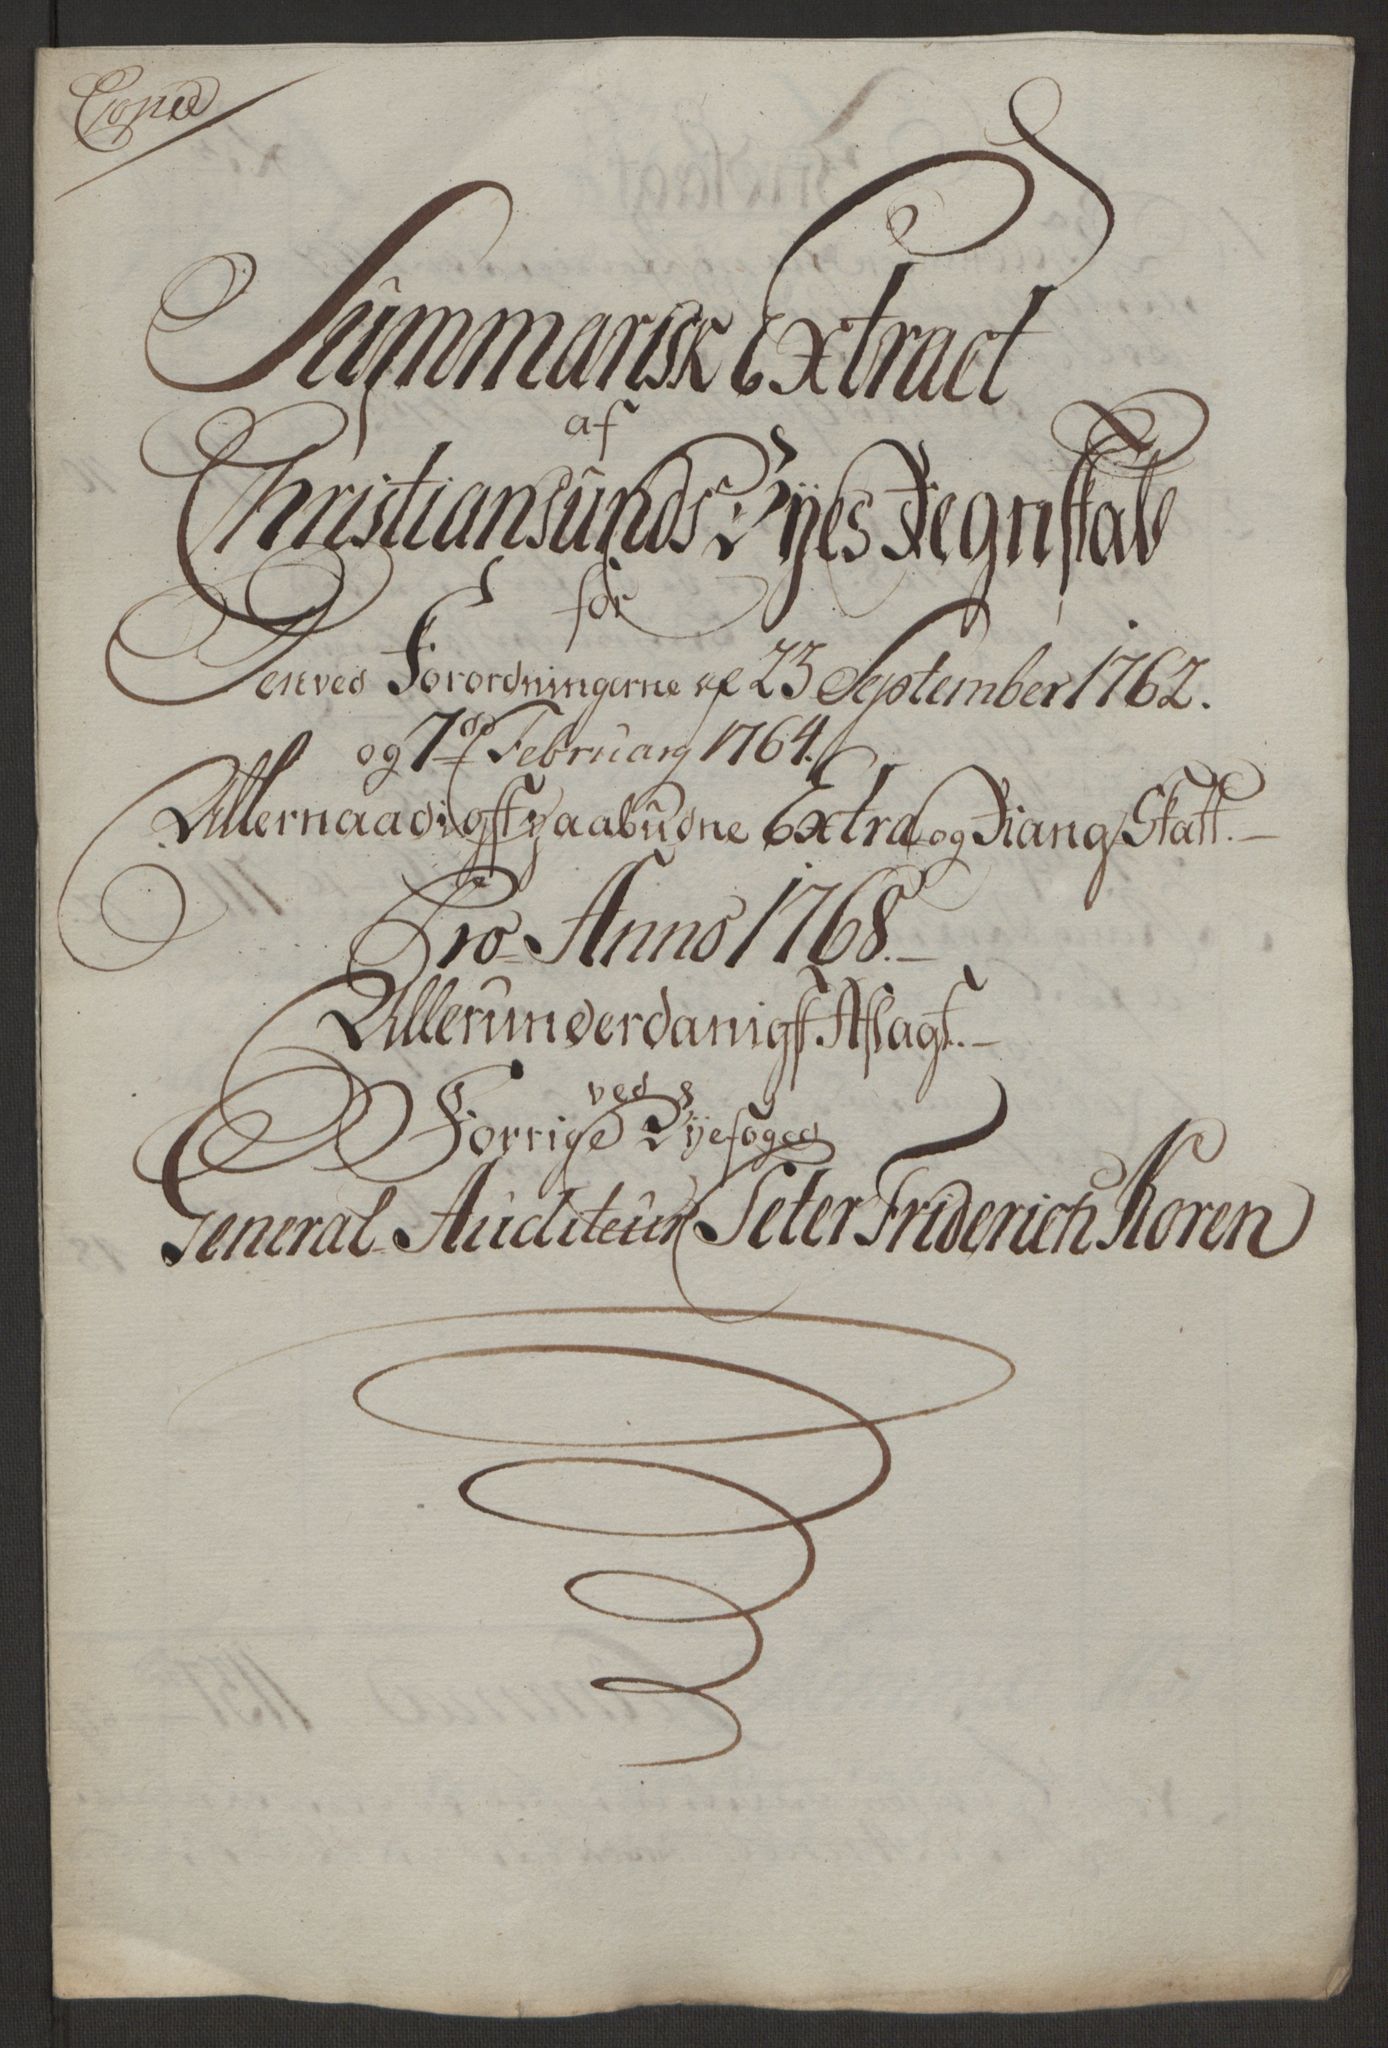 Copie
Summarisk Extract
af
Christiansunds Byes Regnskab
for
Den ved Forordningerne af 23 September 1762.
og 7de February 1764.
Allernaadigst paabudne Extra og Rang Skatt.
Pro Anno 1768.
Allerunderdanigst Aflagt.
ved
Forrige Byefoged
General Auditeur Peter Friderich Koren